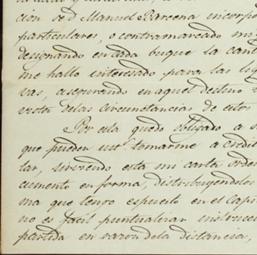 cion se D. Manuel Barcena incorpo
particulares, o contramarcado mi
designando en cada buque la cant
me hallo interesado para las
vas, asegurando en aquel destino
vista delas circunstancias de estos
Por esta quedo obligado a
que puedan
tar, sirviendo esta mi carta orden
cumento en forma, distribuyendolos
ma que tengo espuesto en el Capi
no es facil puntualizar instruc
partida en razon dela distancia,